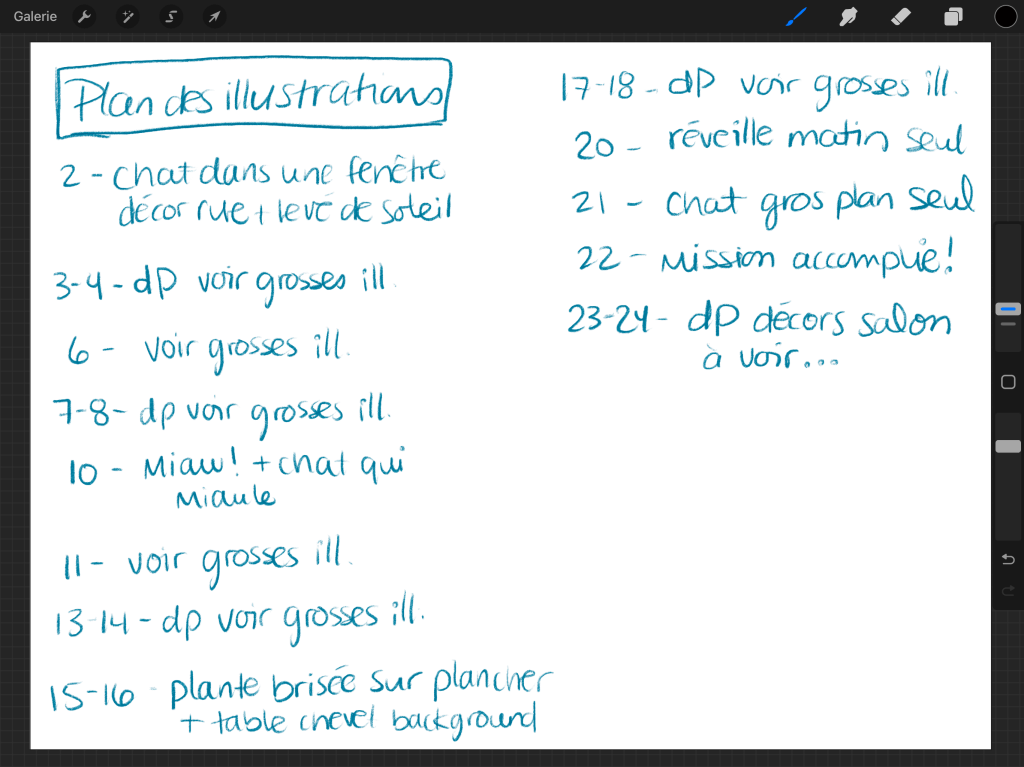 Galerie
Plan des illustrations
2 - chat dans une fenêtre
décor rue + levé de soleil
3-4 - dp voir grosses ill.
6 - voir grosses ill.
7-8 - dp voir grosses ill.
10 - Miaw! + chat qui
Miaule
11 - voir grosses ill.
13-14 - dp voir grosses ill.
15-16 - plante brisée sur plancher
+ table chevet background
17-18 - dP voir grosses ill.
20 - réveille matin seul
21 - chat gros plan seul
22 - Mission accomplie!
23-24 - dP décors salon
à voir...